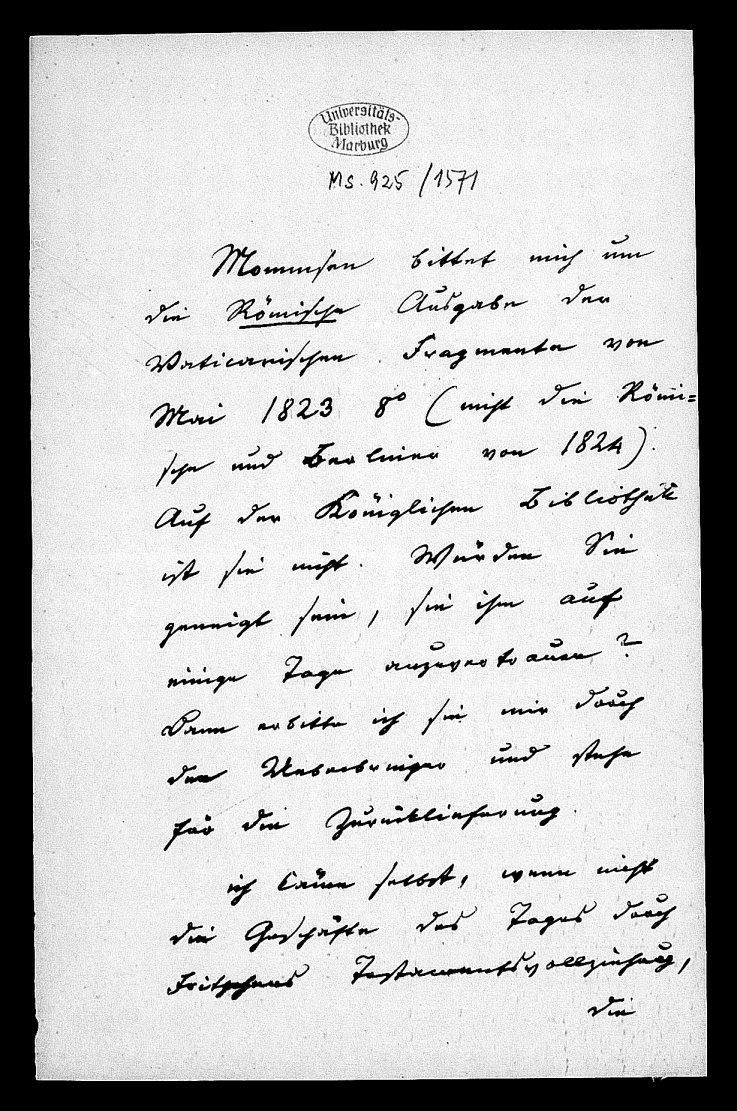 Universitäts-
Bibliothek
Marburg
Ms. 925/1571
Mommsen bittet mich um
die Römische Ausgabe der
Vaticanischen Fragmente von
Mai 1823 8º (nicht die Römi=
sche und Berliner von 1824).
Auf der Königlichen Bibliothek
ist sie nicht. Würden Sie
geneigt sein, sie ihm auf
einige Tage anzuvertrauen?
Dann erbitte ich sie mir durch
den Ueberbringer und stehe
für die Zurücklieferung.
ich käme selbst, wenn nicht
die Geschäfte des Tages durch
Testamentsvollziehung,
die